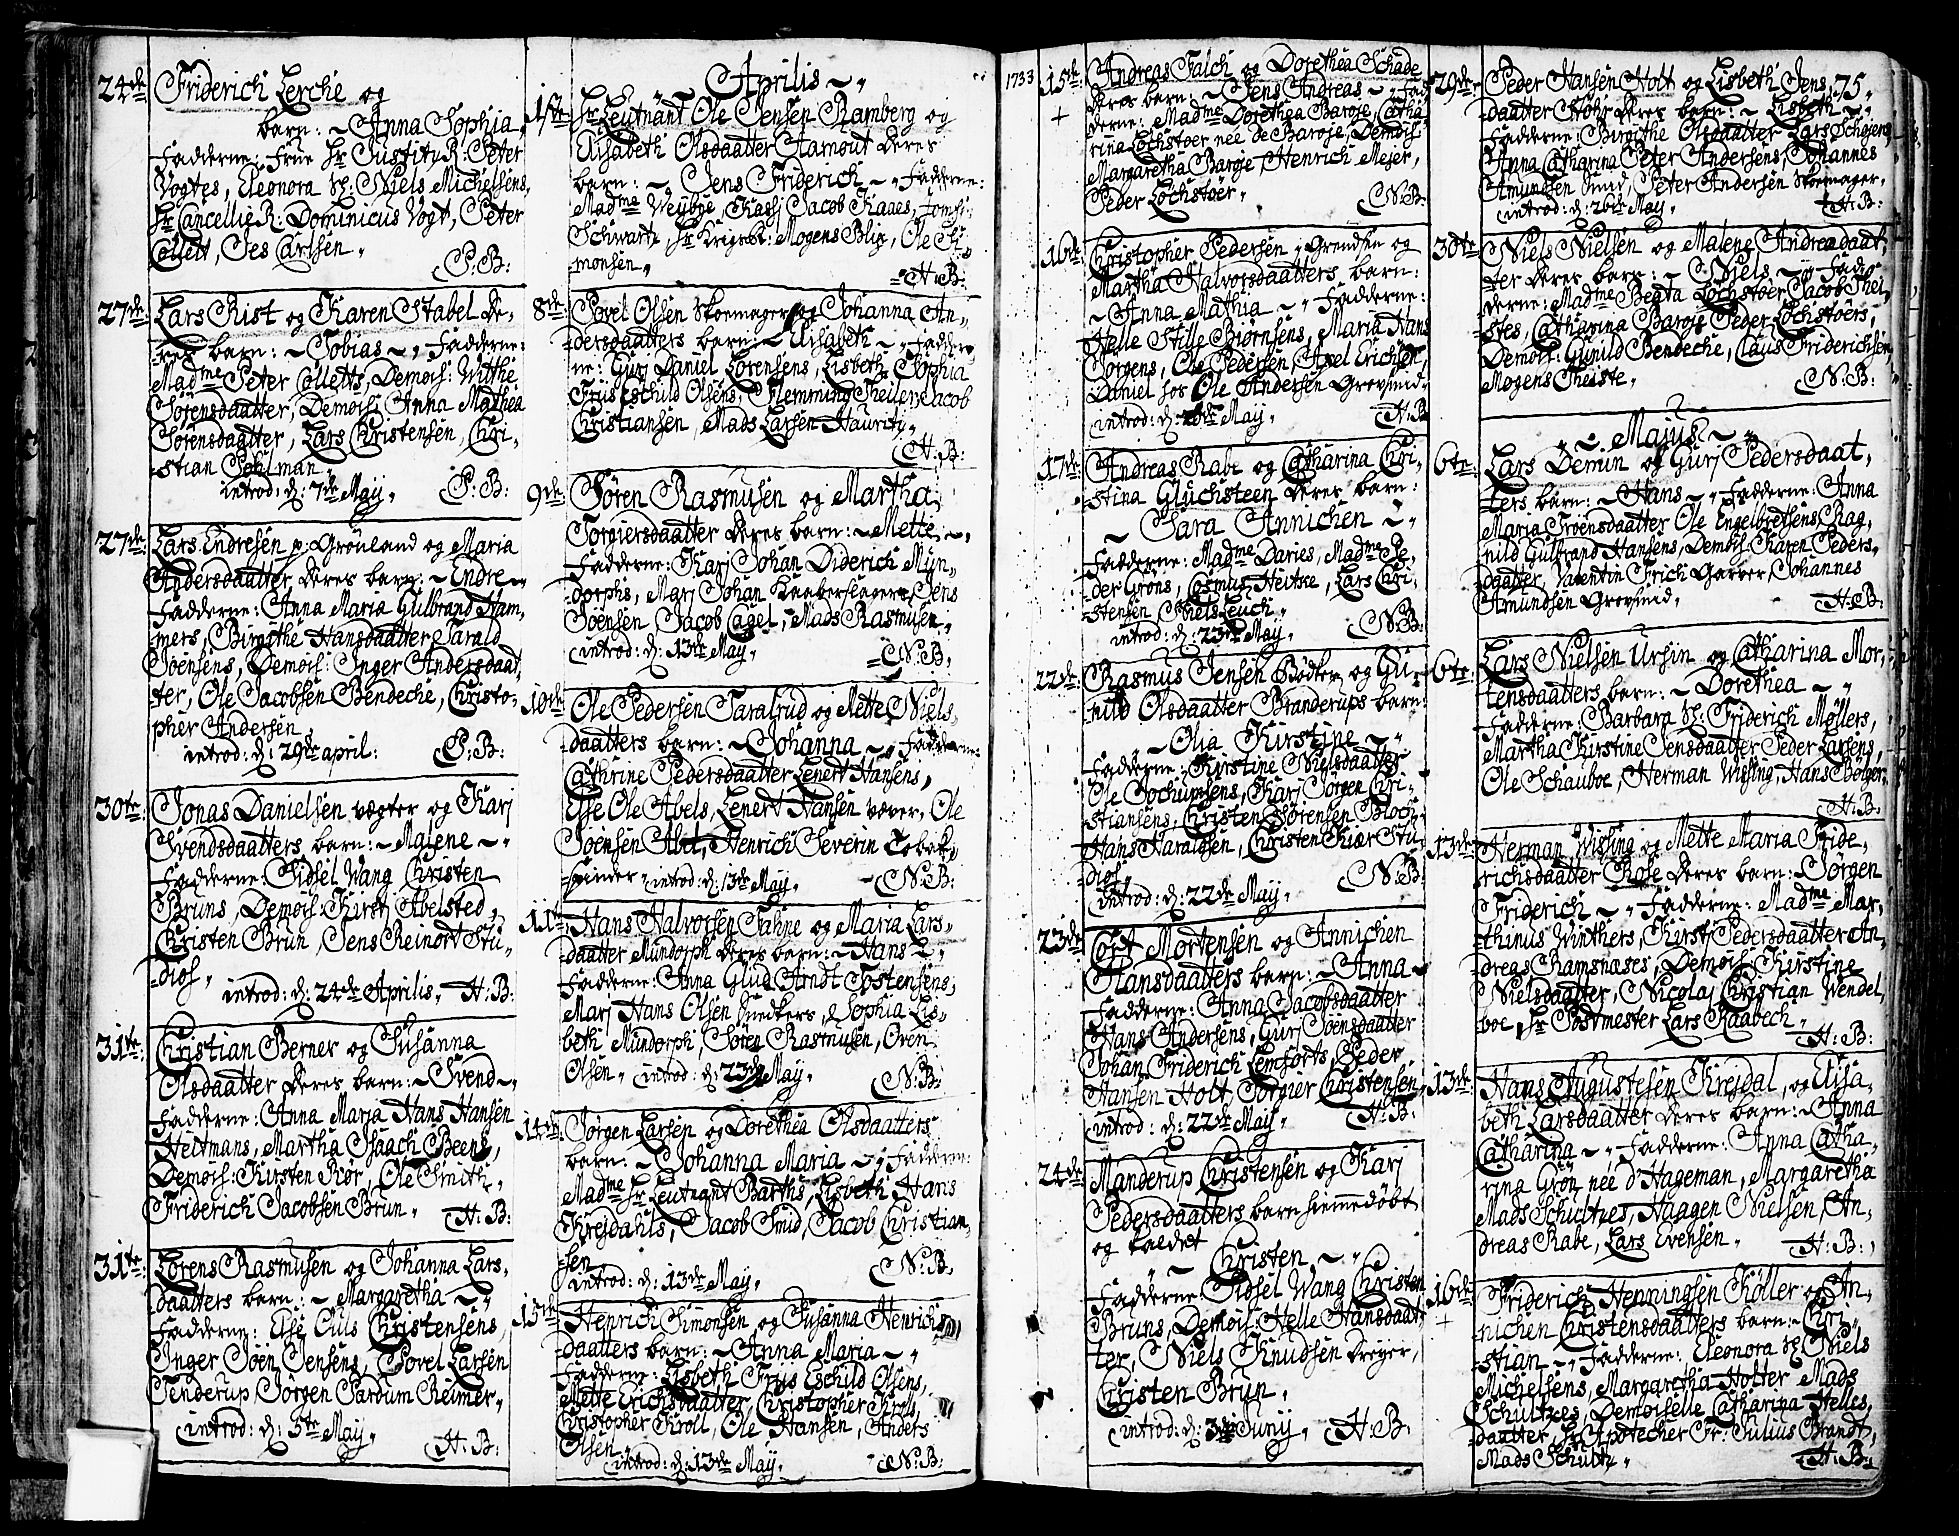 24de Friderich Lerche og
barn: ~ Anna Sophia,
Fadderne: Frue Hr Justity R: Peter
Vogtes, Eleonora Sl: Niels Michelsens,
Hr Cancellie R: Dominicus Vogt, Peter
Collett, Jes Carlsen.
P: B:
27de Lars Rist og Karen Stabel de,
res barn: ~ Tobias ~, Fadderne:
Madme Peter Colletts, Demois: Witthe
Sörensdaatter, Demois: Anna Mathea
Sörensdaatter, Lars Christensen, Chri,
stian Pohlman,
introd: d: 7de May, P: B:
27de Lars Endresen p: Grönland og Maria
Andersdaatter deres barn: ~ Endre ~
Fadderne: Anna Maria Gülbrand Ham,
mers, Birgithe Hansdaatter Tarald
Joensens, Demois: Inger Andersdaat,
ter, Ole Jacobsen Bendeche, Christo,
pher Andersen
introd: d: 29de april: P: B:
30te Jonas Danielsen vegter og Karj
Svendsdaatters barn: ~ Malene ~
Fadderne: Sidsel Wang Christen
Bruns, Demois: Kirst: Abelsted,
Christen Brun, Jens Reinort Stu,
dios,
introd: d: 24de Aprilis, H: B:
31te Christian Berner og Susanna
Olsdaatter deres barn: ~ Svend ~
Fadderne: Anna Maria Hans Hansen
Heitmans, Martha Isaach Beens,
Demois: Kirsten Rör, Ole Smith,
Friderich Jacobsen Brun, H: B:
31te Lorens Rasmusen og Johanna Lars,
daatters barn: ~ Margaretha ~
Fadderne: Else Cüls Christensens,
Inger Joen Jensens, Povel Larsen
Tenderup, Jörgen Pardum Reimer,
introd: d: 5te May, H: B:
Aprilis ~
1ste Hr Leutnant Ole Jensen Ramberg og
Elisabeth Olsdaatter Stamout deres
barn: ~ Jens Friderich ~ Fadderne:
Madme Weybye, Karj Jacob Kaaes,
Schwartz, Hr Krigsk: Mogens Blix, Ole Si,
monsen,
H: B:
8de Povel Olsen Skomager og Johanna An,
dersdaatters barn: ~ Elisabeth ~ Fadder,
ne: Gurj Daniel Lorensens, Lisbeth Sophia
Friis Eschild Olsens, Flemming Theilen, Jacob
Christiansen, Mads Larsen Hauritz,
H: B:
9de Sören Rasmusen og Martha
Torgiersdaatter deres barn: ~ Mette ~
Fadderne: Karj Johan Diderich Mün,
dorphs, Marj Johan Kaaberslagers, Jens
Joensen, Jacob Cagel, Mads Rasmusen,
introd: d: 13de May, N: B:
10de Ole Pedersen Taralrud og Mette Niels,
daatters barn: ~ Johanna ~ Fadderne:
Cathrine Pedersdaatter Lenert Hansens,
Else Ole Abels, Lenert Hansen vever, Ole
Joensen Abel, Henrich Severin Tobak,
spinder, introd: d: 13de May, N: B:
11te Hans Halvorsen Fahne og Maria Lars,
daatter Mundorph deres barn: ~ Hans ~
Fadderne: Anna Glud Arndt Tostensens,
Marj Hans Olsen Snedkers, Sophia Lis,
beth Mundorph, Sören Rasmusen, Oven
Olsen, introd: d: 23de May, N: B:
14de Jörgen Larsen og Dorethea Olsdaatters
barn: ~ Johanna Maria ~ Fadderne:
Madme Hr Leutnant Barths, Lisbeth Hans
Krejdahls, Jacob Smid, Jacob Christian,
sen
introd: d: 13de May, N: B:
15de Henrich Simonsen og Susanna Henrichs,
daatters barn: ~ Anna Maria ~
Fadderne: Lisbeth Friis Eschild Olsens,
Mette Erichsdaatter Christopher Krols,
Christopher Kroll, Ole Hansen, Anders
Olsen,
introd: d: 13de May, N: B:
1733 15de Andreas Falch og Dorethea Schade
+ deres barn: ~ Jens Andreas ~ Fad,
derne: Madme Dorethea Baroje, Catha,
rina Lochstoer nee de Baroje, Demois:
Margaretha Baroje, Henrich Mejer,
Peder Lochstoer, N: B:
16de Christopher Pedersen p: Grendsen og
Martha Halvorsdaatters barn:
~ Anna Mathia ~ Fadderne:
Helle Stille Biörnsens, Maria Hans
Jörgens, Ole Pedersen, Axel Erichsen,
Daniel hos Ole Andersen Grovsmid,
introd: d: 28de May, H: B:
17de Andreas Rabe og Catharina Chri,
stina Gluchsteen deres barn:
~ Sara Annichen ~
Fadderne: Madme Daries, Madme Pe,
der Gröns, Cosmus Heitre, Lars Chri,
stensen, Niels Leuch,
introd: d: 23de May, N: B:
22de Rasmus Jensen Bödker og Gü,
nild Olsdaatter Branderups barn:
~ Olia Kirstine ~
Fadderne: Kirstine Nielsdaatter
Ole Jochumsens, Karj Jörgen Chri,
stiansens, Christen Sörensen Bloch,
Hans Haraldsen, Christen Kiær Stu,
dios,
introd: d: 22de May, N: B:
23de Cort Mortensen og Annichen
Olansdaatters barn: ~ Anna ~
Fadderne: Anna Jacobsdaatter
Hans Andersens, Gurj Joensdaatter
Johan Friderich Lemforts, Peder
Hansen Holt, Torgier Christensen,
introd: d: 22de May, H: B:
24de Manderup Christensen og Karj
Pedersdaatters barn hiemmedöbt
og kaldet
~ Christen ~
Fadderne: Sidsel Wang Christen
Bruns, Demois: Helle Hansdaat,
ter, Niels Knudsen Dreyer,
Christen Brun,
introd: d: 3de Junij, H: B:
75,
29de Peder Hansen Holt og Lisbeth Jens,
daatter Stöhr deres barn: ~ Lisbeth ~
Fadderne: Birgithe Olsdaatter Lars Schojens,
Anna Catharina Peter Andersens, Johannes
Amundsen Smid, Peter Andersen Skomager,
introd: d: 26de May, H: B:
30te Niels Nielsen og Malene Andreadaat,
ter deres barn: ~ Niels ~ Fad,
derne: Madme Beata Lochstoer Jacob Thei,
stes, Catharina Baroje Peder Lochstoers,
Demois: Günild Bendeche, Claus Friderichsen,
Mogens Theiste, N: B:
~ Majus ~
6te Lars Demin og Gurj Pedersdaat,
ters barn: ~ Hans ~ Fadderne: Anna
Maria Troensdaatter Ole Engelbretsens, Rag,
nild Gulbrand Hansens, Demois: Karen Peders,
daatter, Valentin Frich Garver, Johannes
Amundsen Grovsmid, H: B:
6te Lars Nielsen Ursin og Catharina Mor,
tensdaatters barn: ~ Dorethea ~
Fadderne: Barbara Sl: Friderich Møllers,
Martha Kirstine Jensdaatter Peder Larsens,
Ole Schauboe, Herman Wising, Hans Bölger,
H: B:
13de Herman Wising og Mette Maria Fride,
richsdaatter Rose deres barn: ~ Jörgen
Friderich ~ Fadderne: Madme Mar,
thinus Winthers, Kirst: Pedersdaatter An,
dreas Ramsnæses, Demois: Kirstine
Nielsdaatter, Nicolaj Christian Wendel,
boe, Hr Postmester Lars Raabech,
H: B:
13de Hans Augustesen Krejdal, og Elisa,
beth Larsdaatter deres barn: ~ Anna
Catharina ~ Fadderne: Anna Catha,
rina Grön née d'Hageman, Margaretha
Mads Schultzes, Haagen Nielsen, An,
dreas Rabe, Lars Evensen, H: B:
16de Friderich Henningsen Köller og An,
+ nichen Christensdaatters barn: ~ Chri,
stian ~ Fadderne: Eleonora Sl: Niels
Michelsens, Margaretha Holter Mads
Schultzes, Demoiselle Catharina Helles,
daatter, Hr Apotecher Fr: Julius Brandt,
Mads Schultz, H: B: